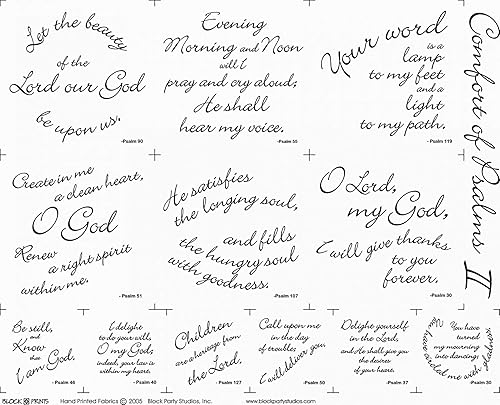 Let the beauty
of the
Lord our God
be upon us.
-Psalm 90
Evening
Morning and Noon
will I
pray and cry aloud;
He shall
hear my voice.
-Psalm 55
Your word
is a
lamp
to my feet
and a
light
to my path.
-Psalm 119
Comfort of Psalms II
Create in me
a clean heart,
O God
Renew
a right spirit
within me.
-Psalm 51
He satisfies
the longing soul,
and fills
the hungry soul
with goodness.
-Psalm 107
O Lord,
my God,
I will give thanks
to you
forever.
-Psalm 30
Be still,
and
Know
that
I am God.
-Psalm 46
I delight
to do your will,
O my God;
indeed, your law is
within my heart.
-Psalm 40
Children
are a heritage from
the Lord.
-Psalm 127
Call upon me
in the day
of trouble;
I will deliver you.
-Psalm 50
Delight yourself
in the Lord,
and He shall give you
the desires
of your heart.
-Psalm 37
You have
turned
my mourning
into dancing;
You have clad me with
gladness.
-Psalm 30
BLOCK PRINTS
Hand Printed Fabrics © 2005 Block Party Studios, Inc.
www.blockpartystudios.com